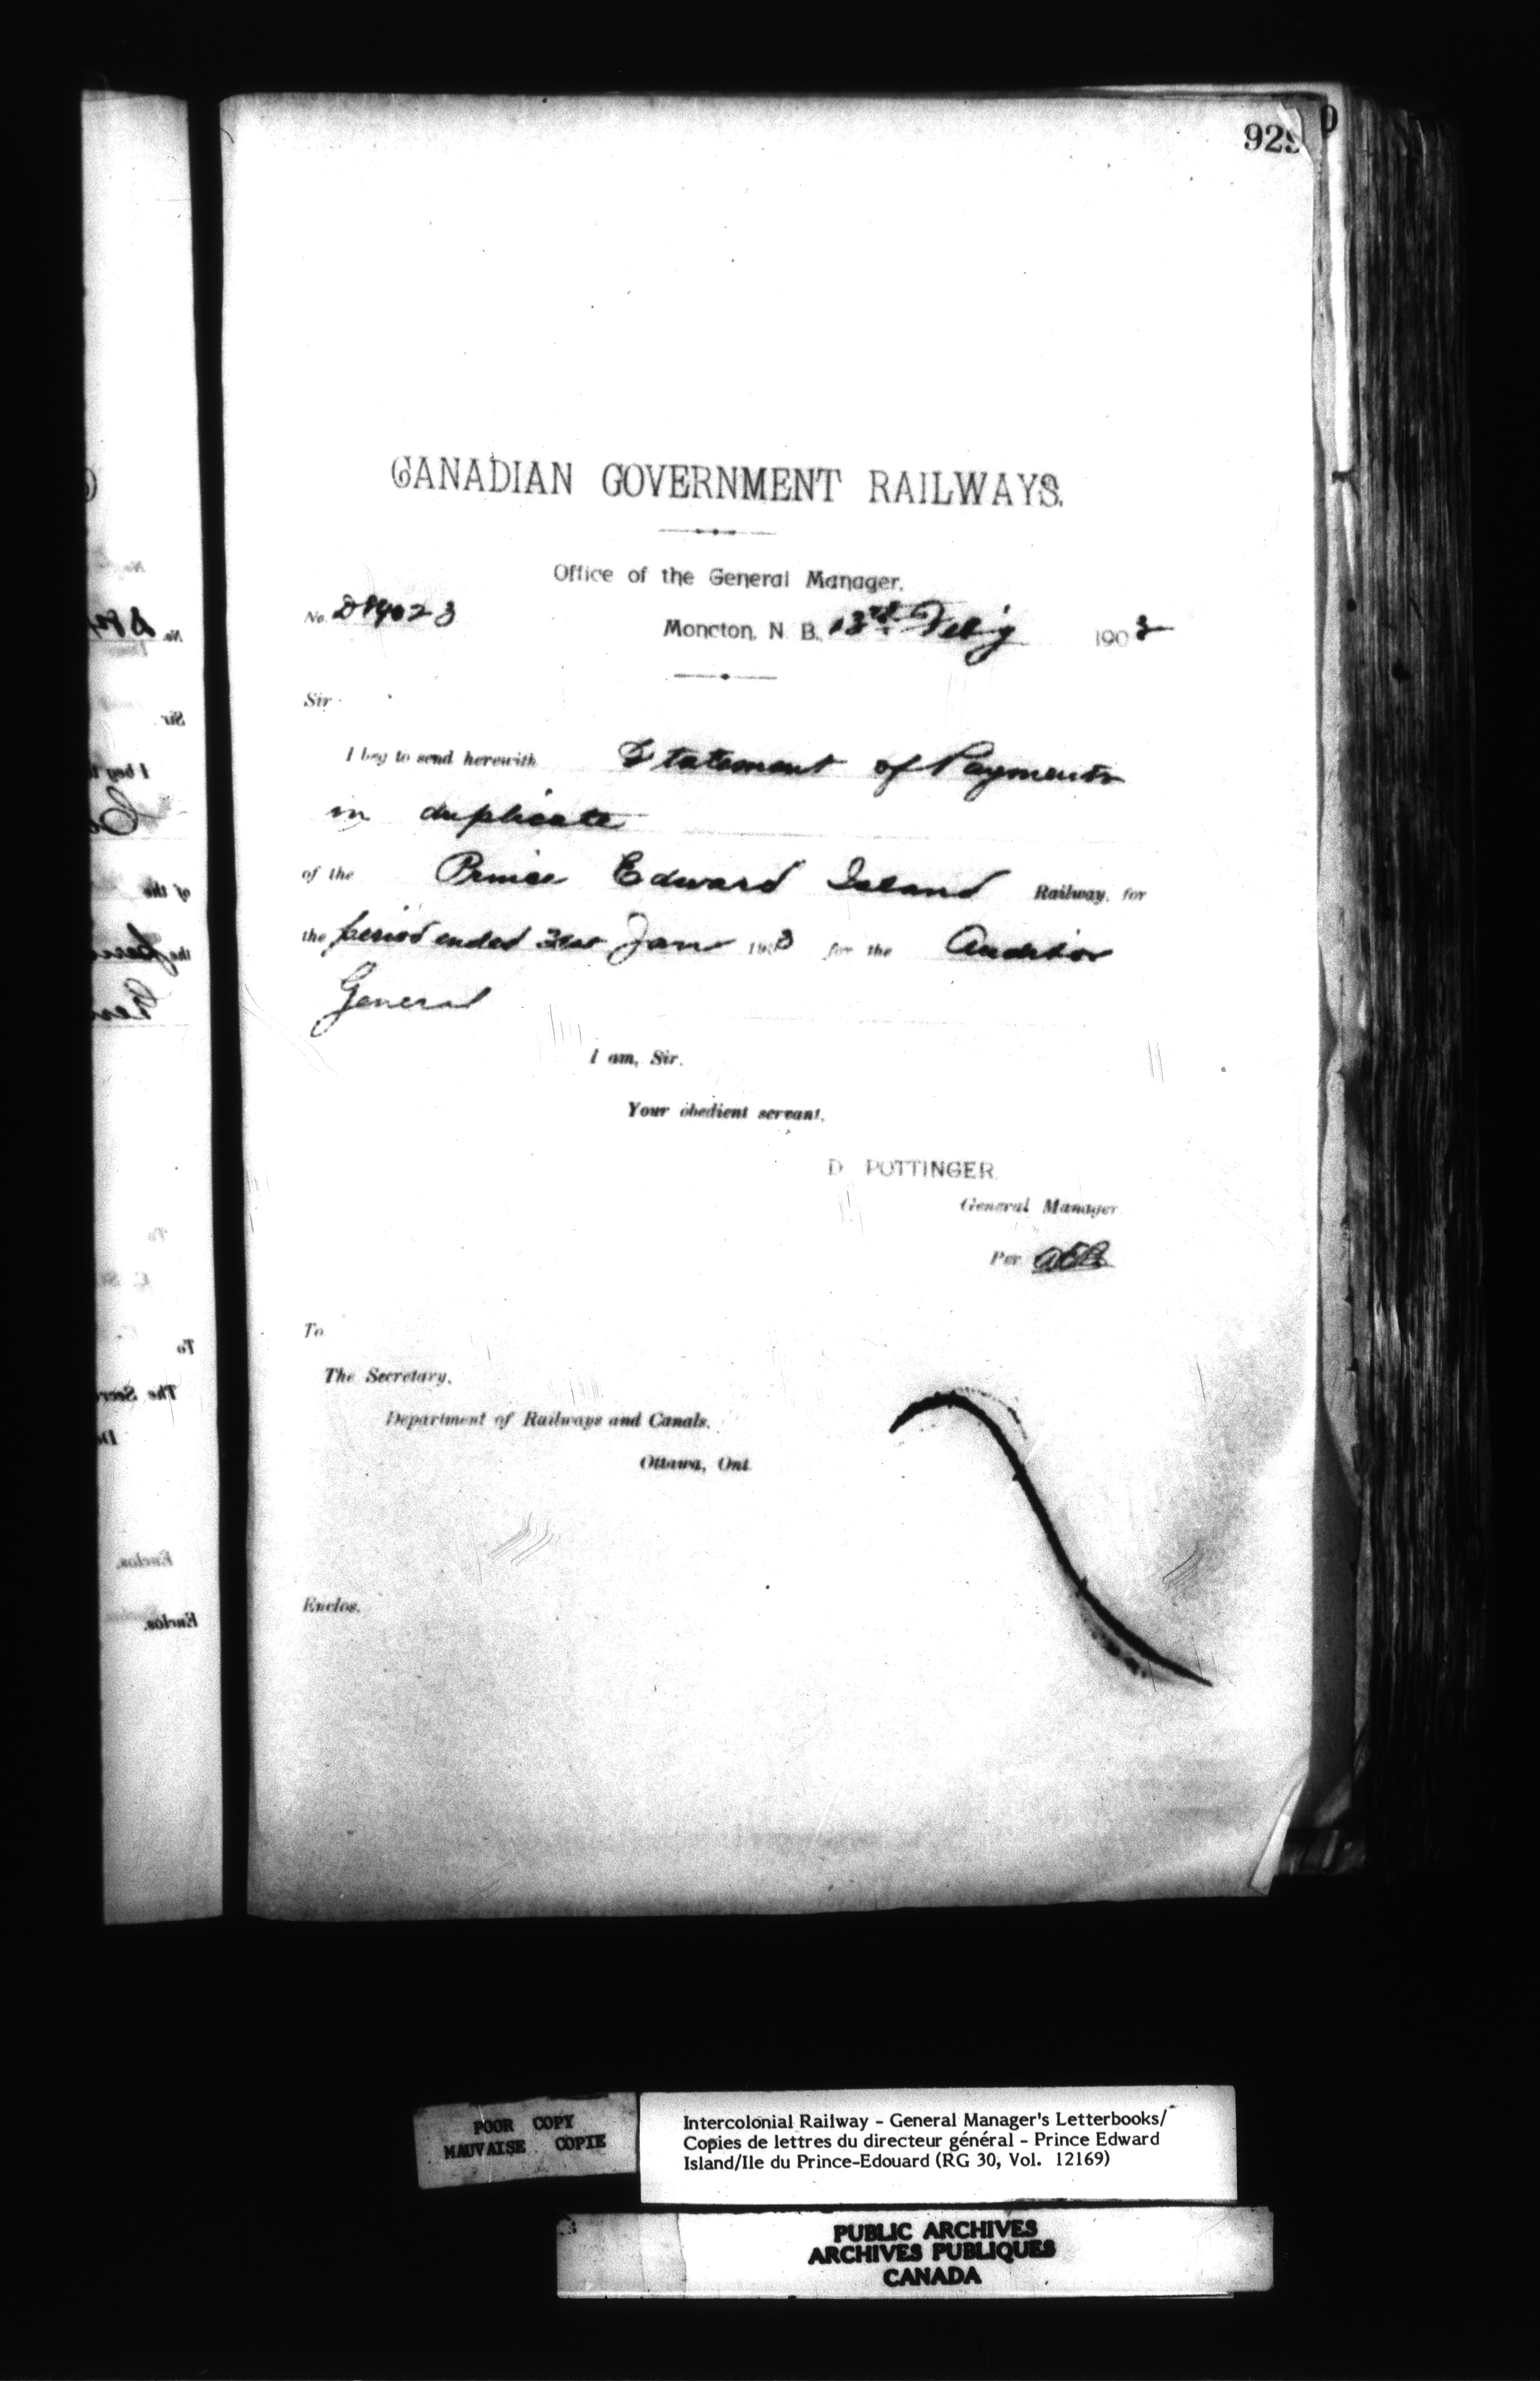 929
CANADIAN GOVERNMENT RAILWAYS.
Office of the General Manager.
No. D84023
Moncton, N. B., 13th Feb'y 1903
Sir
I beg to send herewith Statement of Payments
in duplicate
of the Prince Edward Island Railway, for
the period ended 31st Jan 1903 for the Auditor
General
I am, Sir.
Your obedient servant,
D POTTINGER
General Manager
Per
To
The Secretary,
Department of Railways and Canals.
Ottawa, Ont
Enclos.
POOR COPY
MAUVAISE COPIE
Intercolonial Railway - General Manager's Letterbooks/
Copies de lettres du directeur général - Prince Edward
Island/Ile du Prince-Edouard (RG 30, Vol. 12169)
PUBLIC ARCHIVES
ARCHIVES PUBLIQUES
CANADA